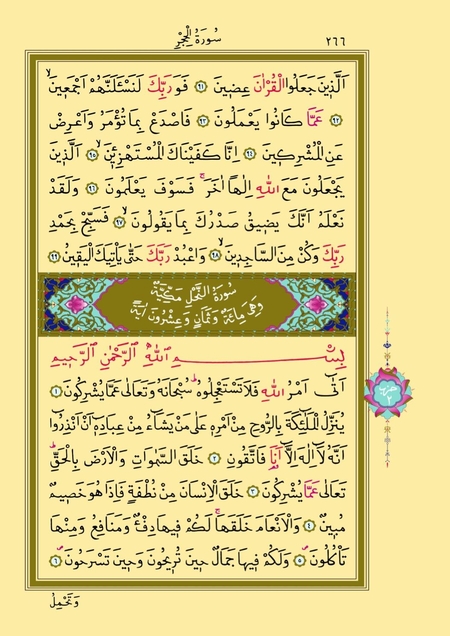 سُورَةُ الْحِجْرِ ٢٦٦
اَلَّذِينَ جَعَلُوا الْقُرْاٰنَ عِضِينَ ﴿٩١﴾ فَوَرَبِّكَ لَنَسْـَٔلَنَّهُمْ اَجْمَعِينَۙ
﴿٩٢﴾ عَمَّا كَانُوا يَعْمَلُونَ ﴿٩٣﴾ فَاصْدَعْ بِمَا تُؤْمَرُ وَاَعْرِضْ
عَنِ الْمُشْرِكِينَ ﴿٩٤﴾ اِنَّا كَفَيْنَاكَ الْمُسْتَهْزِئِينَۙ ﴿٩٥﴾ اَلَّذِينَ
يَجْعَلُونَ مَعَ اللّٰهِ اِلٰهًا اٰخَرَۚ فَسَوْفَ يَعْلَمُونَ ﴿٩٦﴾ وَلَقَدْ
نَعْلَمُ اَنَّكَ يَضِيقُ صَدْرُكَ بِمَا يَقُولُونَۙ ﴿٩٧﴾ فَسَبِّحْ بِحَمْدِ
رَبِّكَ وَكُنْ مِنَ السَّاجِدِينَۙ ﴿٩٨﴾ وَاعْبُدْ رَبِّكَ حَتّٰى يَأْتِيَكَ الْيَقِينُ ﴿٩٩﴾
سُورَةُ النَّحْلِ مَكِّيَّةٌ
وَهِيَ مِائَةٌ وَثَمَانٍ وَعِشْرُونَ اٰيَةً
بِسْمِ اللّٰهِ الرَّحْمٰنِ الرَّحِيمِ
اَتٰٓى اَمْرُ اللّٰهِ فَلَا تَسْتَعْجِلُوهُۜ سُبْحَانَهُ وَتَعَالٰى عَمَّا يُشْرِكُونَ ﴿١﴾
يُنَزِّلُ الْمَلٰٓئِكَةَ بِالرُّوحِ مِنْ اَمْرِهِ عَلٰى مَنْ يَشَٓاءُ مِنْ عِبَادِهِٓ اَنْ اَنْذِرُٓوا
اَنَّهُ لَٓا اِلٰهَ اِلَّٓا اَنَا۬ فَاتَّقُونِ ﴿٢﴾ خَلَقَ السَّمٰوَاتِ وَالْاَرْضَ بِالْحَقِّۜ
تَعَالٰى عَمَّا يُشْرِكُونَ ﴿٣﴾ خَلَقَ الْاِنْسَانَ مِنْ نُطْفَةٍ فَاِذَا هُوَ خَصِيمٌ
مُبِينٌ ﴿٤﴾ وَالْاَنْعَامَ خَلَقَهَاۚ لَكُمْ فِيهَا دِفْءٌ وَمَنَافِعُ وَمِنْهَا
تَأْكُلُونَۖ ﴿٥﴾ وَلَكُمْ فِيهَا جَمَالٌ حِينَ تُرِيحُونَ وَحِينَ تَسْرَحُونَۖ ﴿٦﴾
وَتَحْمِلُ